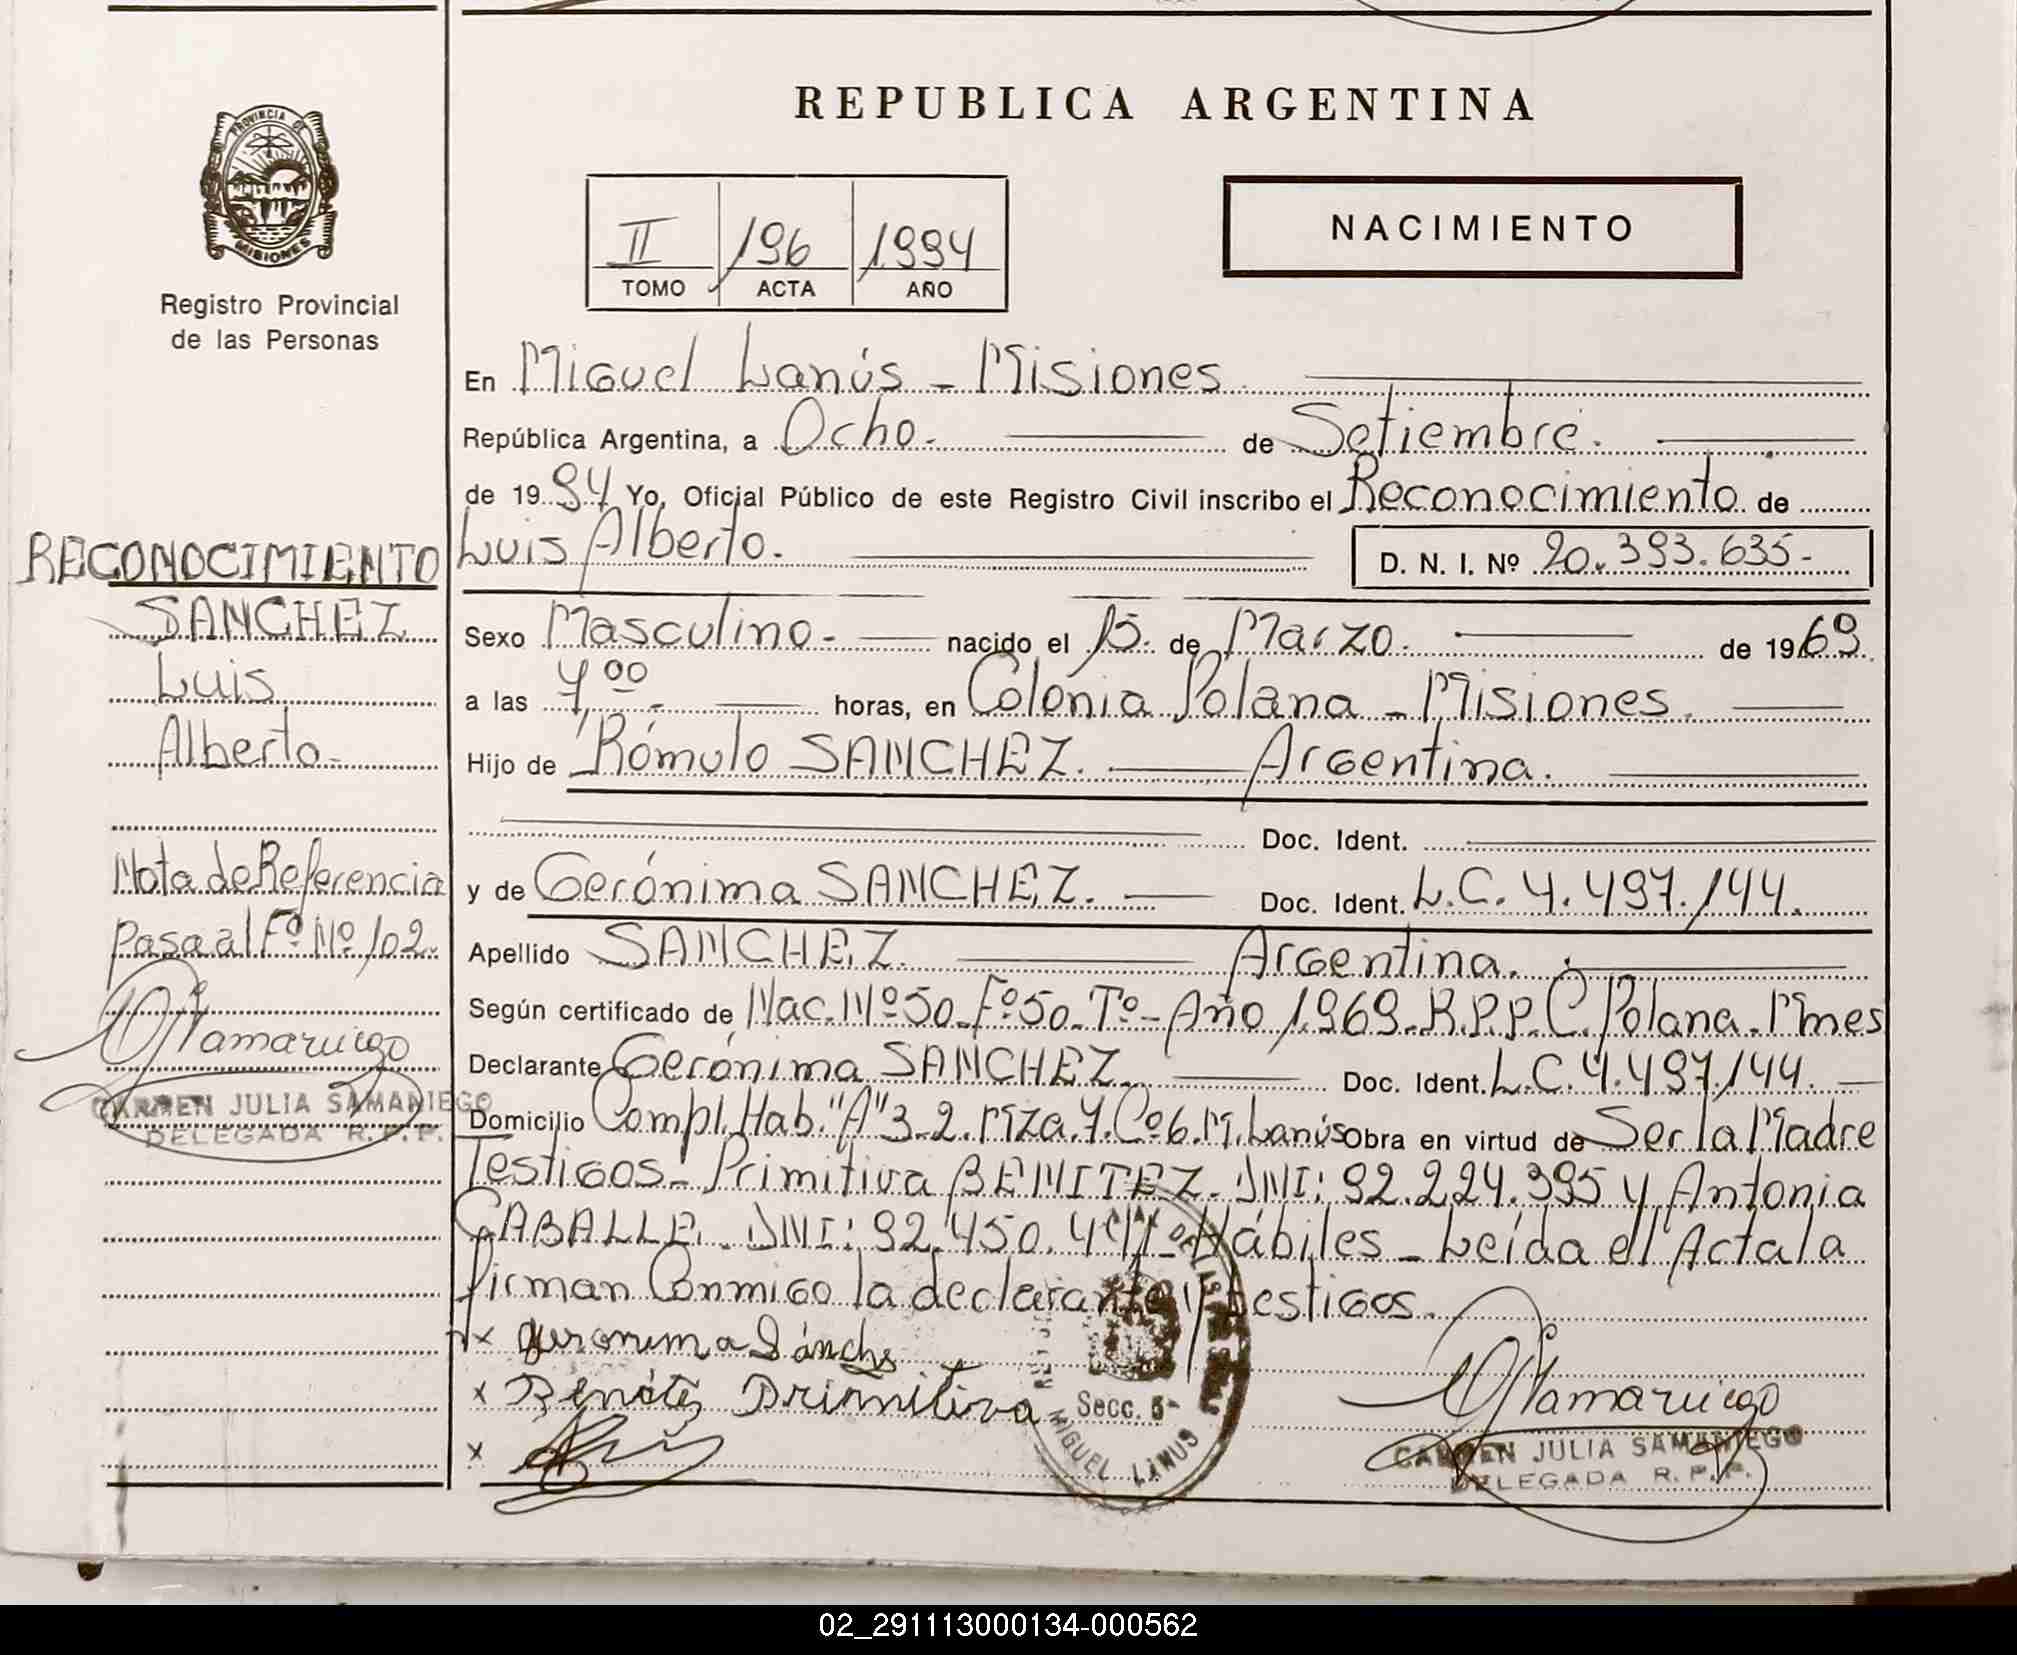 REPUBLICA ARGENTINA
PROVINCIA DE
MISIONES
Registro Provincial
de las Personas
II 196 1994
TOMO ACTA AÑO
NACIMIENTO
En Miguel Lanús - Misiones
República Argentina, a Ocho.- de Setiembre.
de 1994 Yo, Oficial Público de este Registro Civil inscribo el Reconocimiento de
Luis Alberto. D. N. I. Nº 20.393.635-
Sexo Masculino- nacido el 15. de Marzo. de 1969
a las 4 00 - horas, en Colonia Polana - Misiones
Hijo de Rómulo SANCHEZ. Argentina.
Doc. Ident.
y de Gerónima SANCHEZ. Doc. Ident. L.C. 4.497.144.
Apellido SANCHEZ. Argentina.
Según certificado de Nac. Nº 50- Fº 50- Tº- Año 1969- R.P.P. C. Polana- Mnes
Declarante Gerónima SANCHEZ. Doc. Ident. L.C. 4.497.144.
Domicilio Compl. Hab. "A" 3-2. Mza. 7. Cº 6. M. Lanús Obra en virtud de Ser la Madre
Testigos- Primitiva BENITEZ- DNI: 92.224.395 y Antonia
CABALLE. DNI: 92.450. Hábiles- Leída el Acta la
firman Conmigo la declarante y testigos.
x Geronima Sánchs
x Benites Primitiva
x
Secc. 5-
MIGUEL LANUS
CARMEN JULIA SAMANIEGO
DELEGADA R. P. P.
RECONOCIMIENTO
SANCHEZ
Luis
Alberto-
Nota de Referencia
pasa al Fº Nº 102-
CARMEN JULIA SAMANIEGO
DELEGADA R. P. P.
02_291113000134-000562